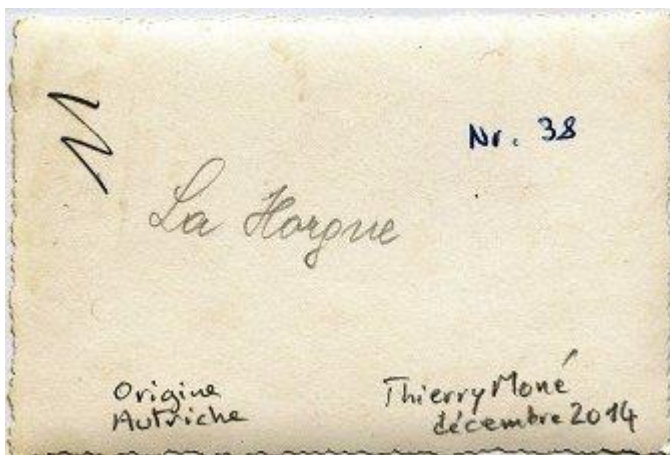 Nr. 38
La Horgne
Origine
Autriche
Thierry Moné
décembre 2014